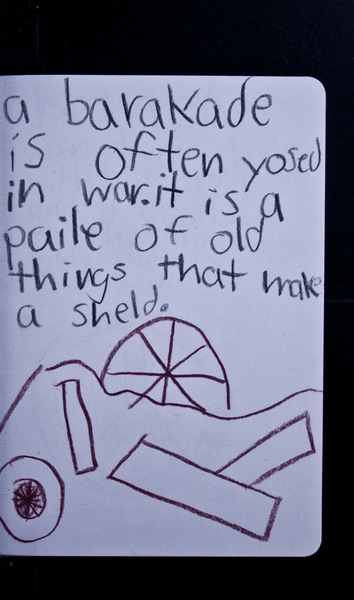 a barakade
is often yosed
in war. it is a
paile of old
things that make
a sheld.